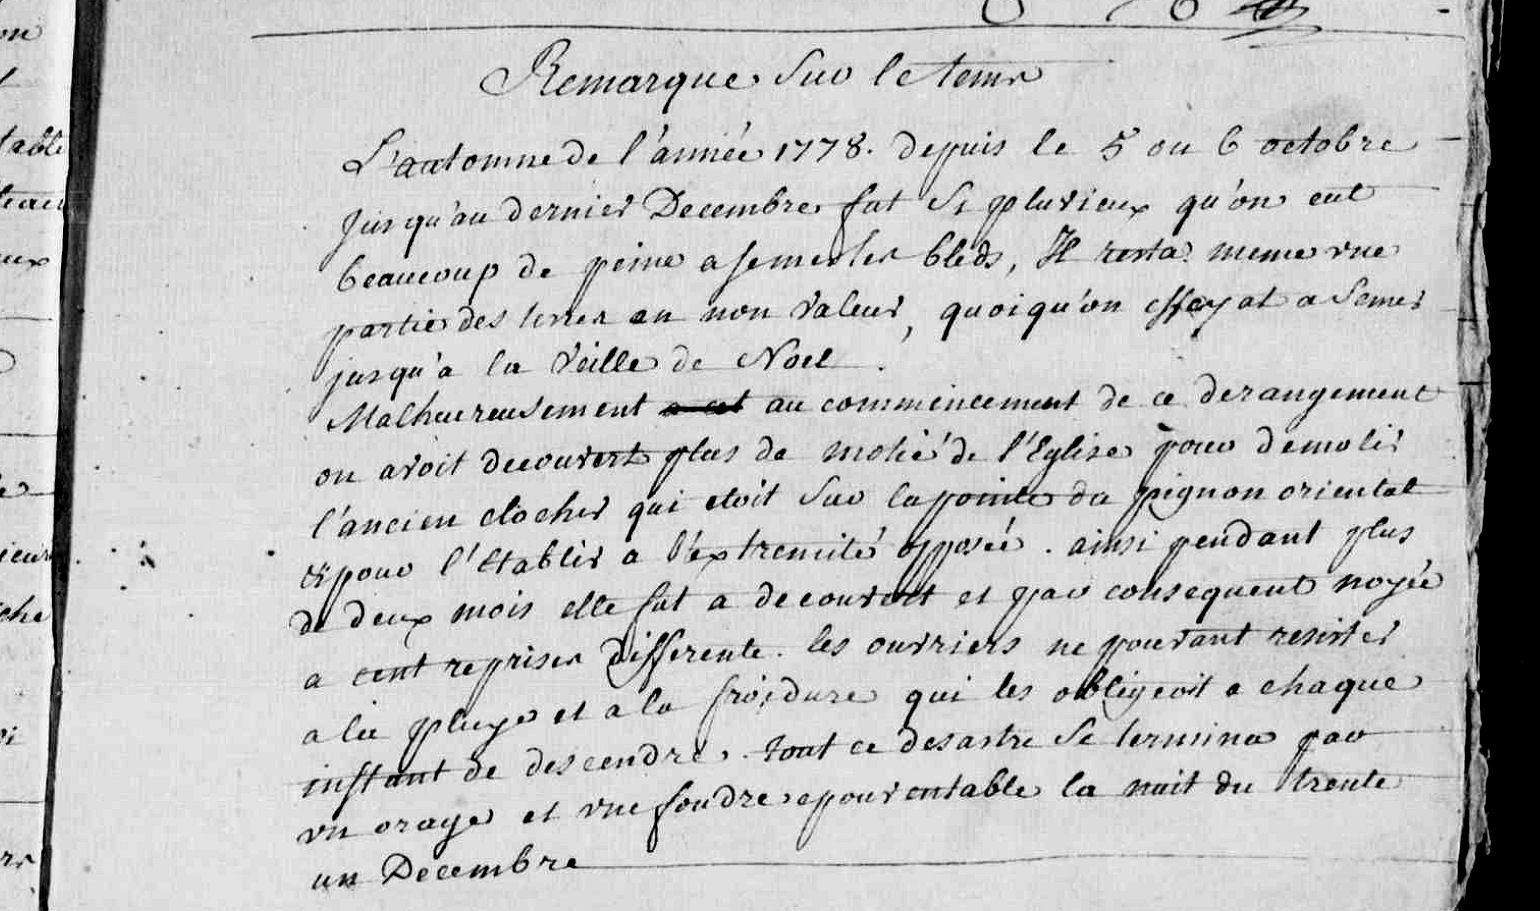 Remarque sur le tems
L'automne de l'année 1778. depuis le 5 ou 6 octobre
jusqu'au dernier Decembre fut si pluvieux qu'on eut
beaucoup de peine a semer les bleds, Il resta meme vne
partie des terres en non valeur, quoiqu'on essayat a semer
jusqu'a la veille de Noel.
Malheureusement a cet au commencement de ce derangement
on avoit decouvert plus de motié de l'Eglise pour demolir
l'ancien clocher qui etoit sur la pointe du pignon oriental
& pour l'etablir a l'extremité opposée. ainsi pendant plus
de deux mois elle fut a decouvert et par consequent noyée
a cent reprises differente. les ouvriers ne pouvant resister
a la pluye et a la froidure qui les obligeoit a chaque
instant de descendre. tout ce desastre se termina par
vn orage et vne foudre epouventable la nuit du trente
un Decembre